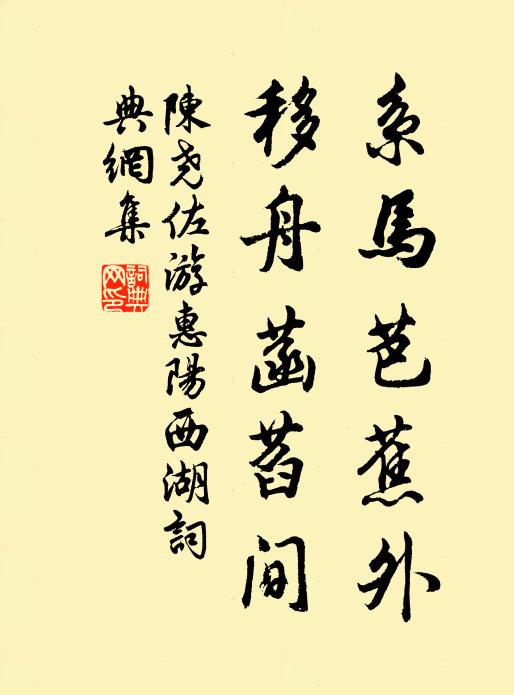 系馬芭蕉外
移舟菡萏間
陳堯佐游惠陽西湖詞
典網集
詞典網印